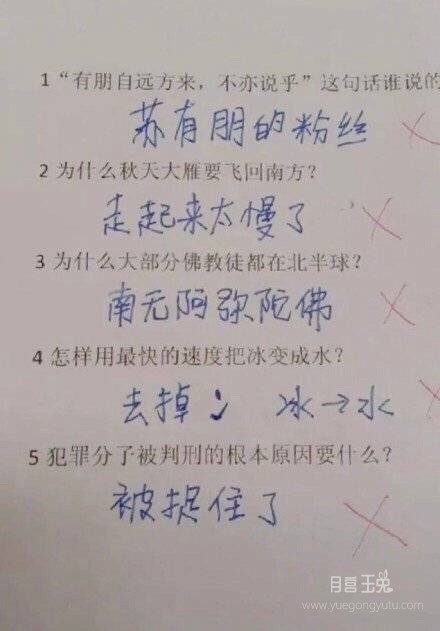 1“有朋自远方来，不亦说乎”这句话谁说的
苏有朋的粉丝
2 为什么秋天大雁要飞回南方？
走起来太慢了
3 为什么大部分佛教徒都在北半球？
南无阿弥陀佛
4 怎样用最快的速度把冰变成水？
去掉冫 冰→水
5 犯罪分子被判刑的根本原因要什么？
被捉住了
月宫玉兔
www.yuegongyutu.com